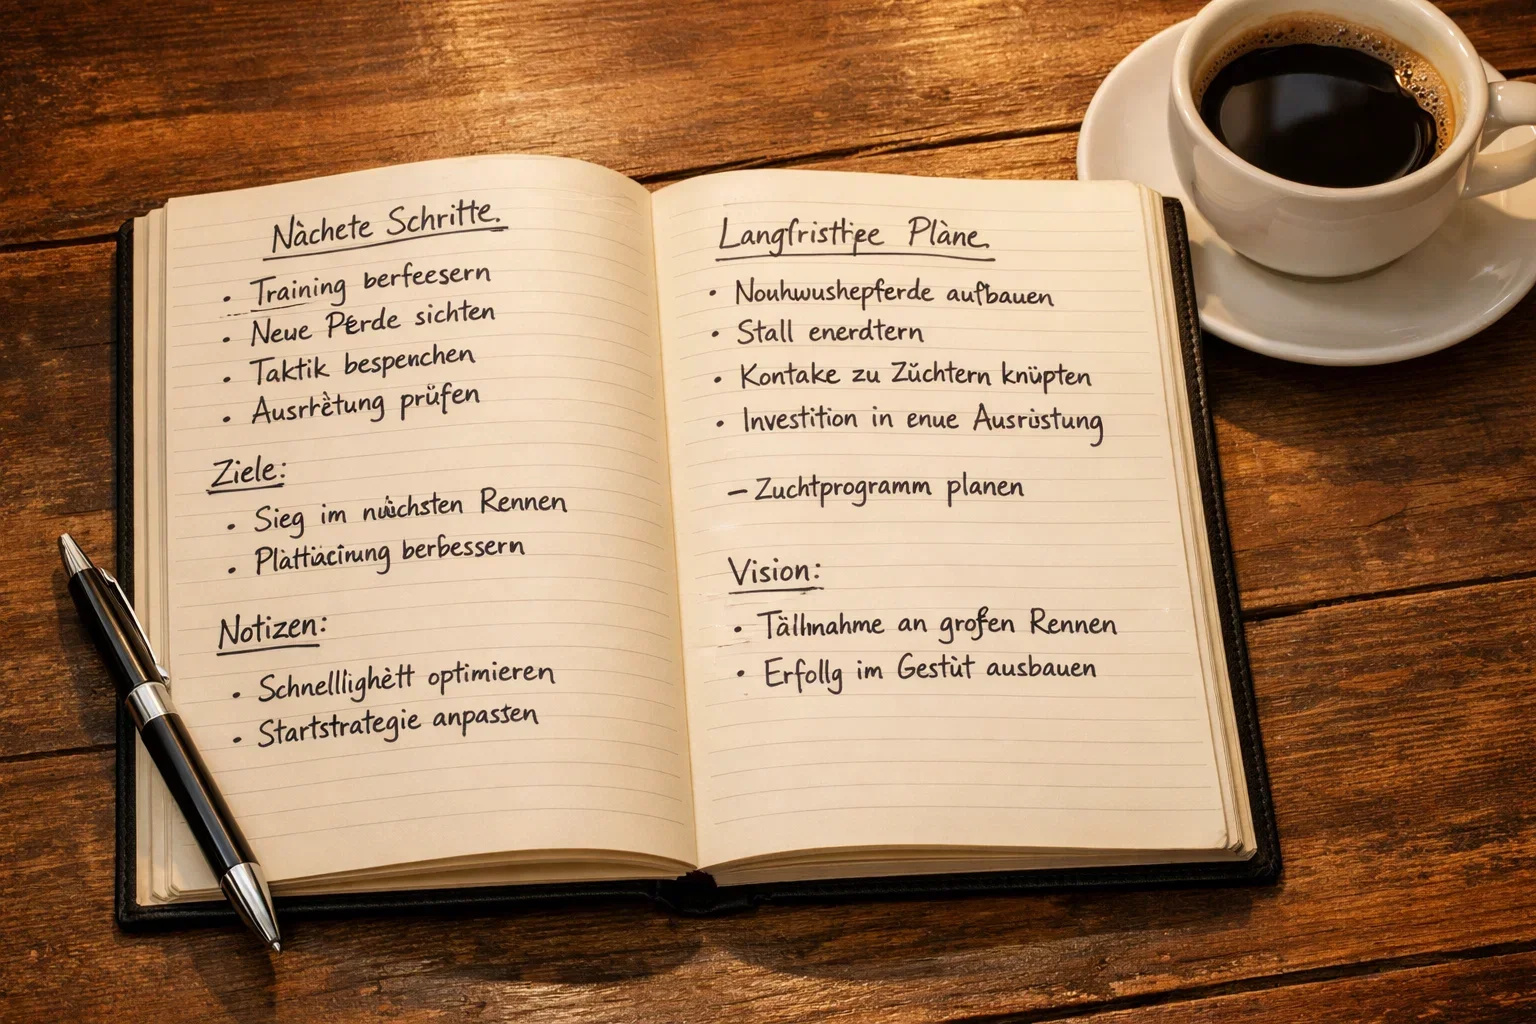 Nàchete Schritte.
• Training berfeesern
• Neue Pferde sichten
• Taktik bespenchen
• Ausrhètung prüfen
Ziele:
• Sieg im nächsten Rennen
• Plättiacinung berbessern
Notizen:
• Schnellighètt optimieren
• Startstrategie anpassen
Langfristhpe Pläne.
• Nouhwushepferde aufbauen
• Stall enerdtern
• Kontake zu Züchtern knüpten
• Investition in enue Ausrüstung
– Zuchtprogramm planen
Vision:
• Tällnahme an großen Rennen
• Erfollg im Gestüt ausbauen